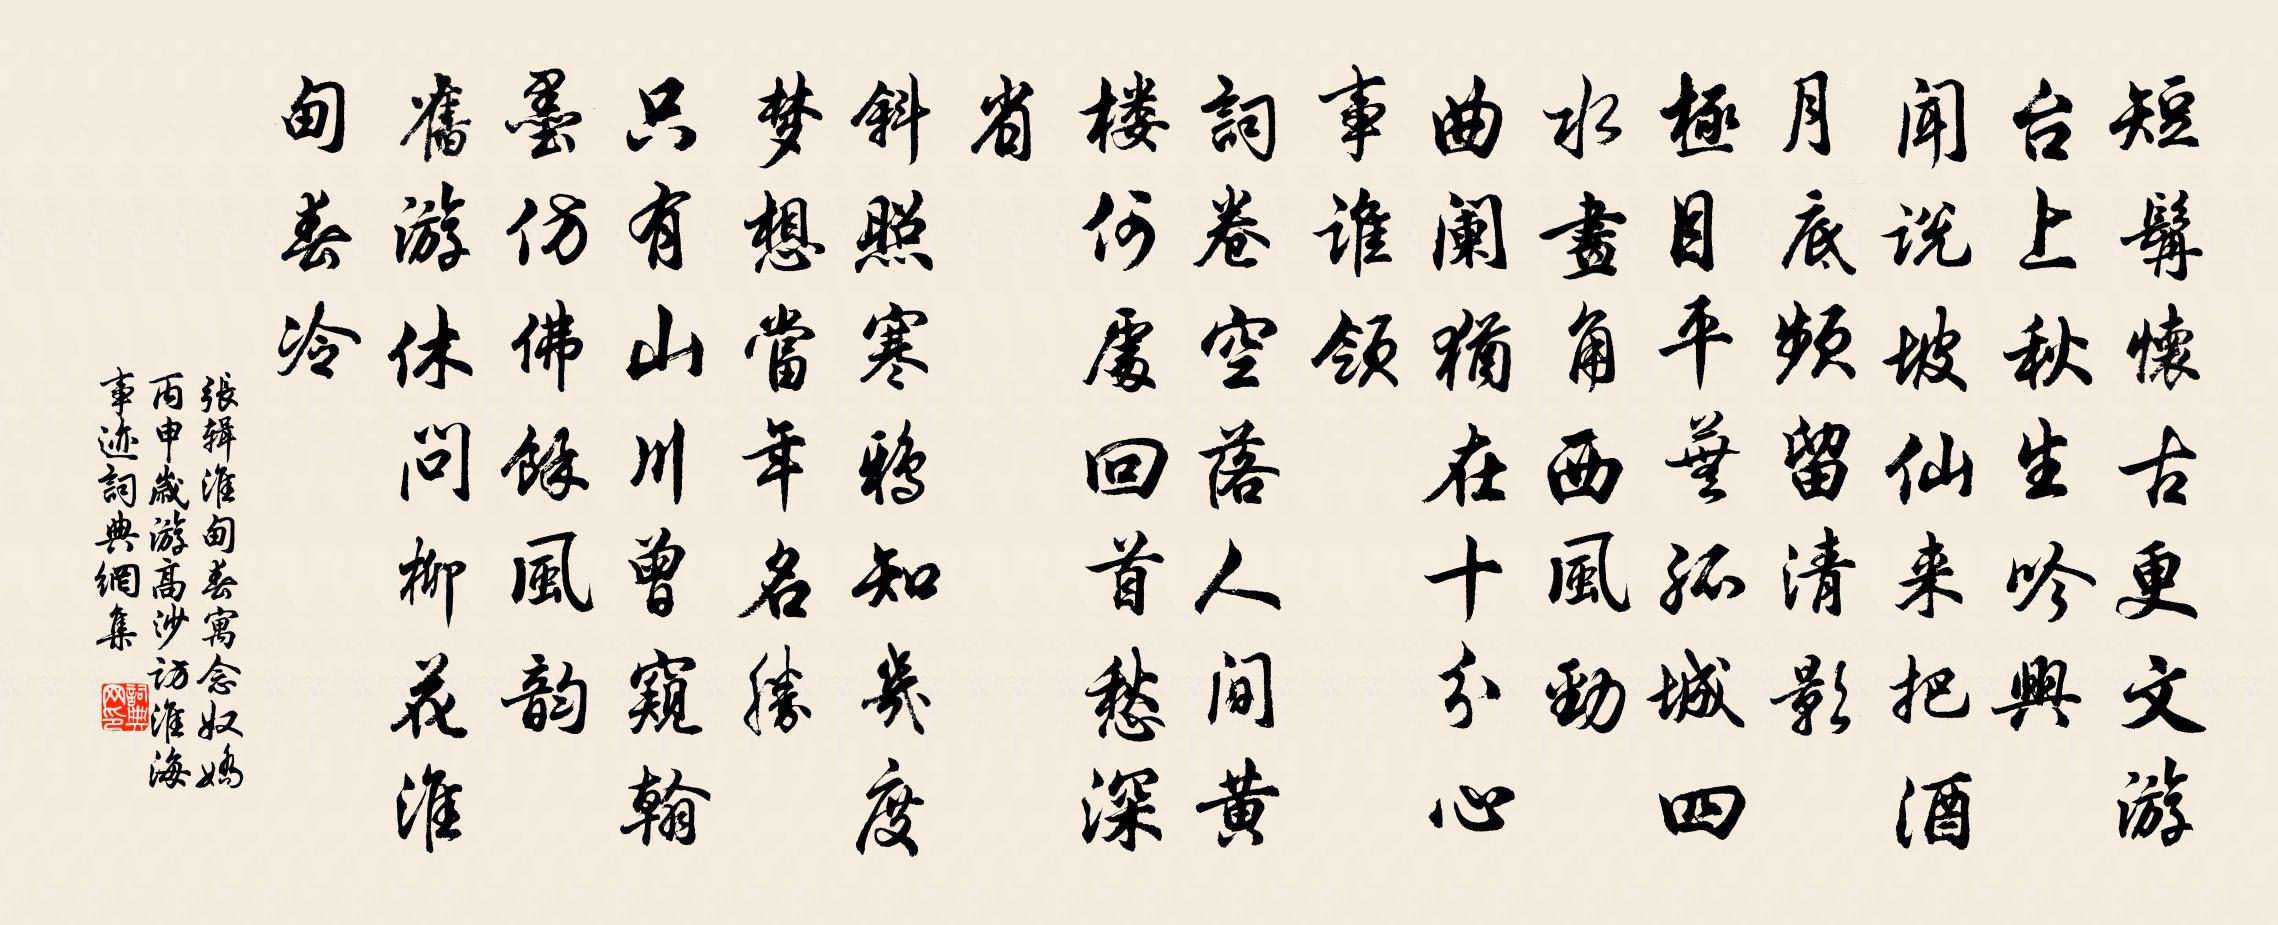 短髯懷古更文游
台上秋生吟興
闻说坡仙来把酒
月底频留清影
極目平蕪孤城四
水畫角西風勁
曲阑猶在十分心
事谁领
詞卷空落人间黄
楼何處回首愁深
省
斜照寒鸦知幾度
梦想當年名勝
只有山川曾窺翰
墨仿佛餘風韵
舊游休问柳花淮
甸春冷
張辑淮甸春寓念奴嬌
丙申歲游高沙访淮海
事迹詞典網集
詞典网印